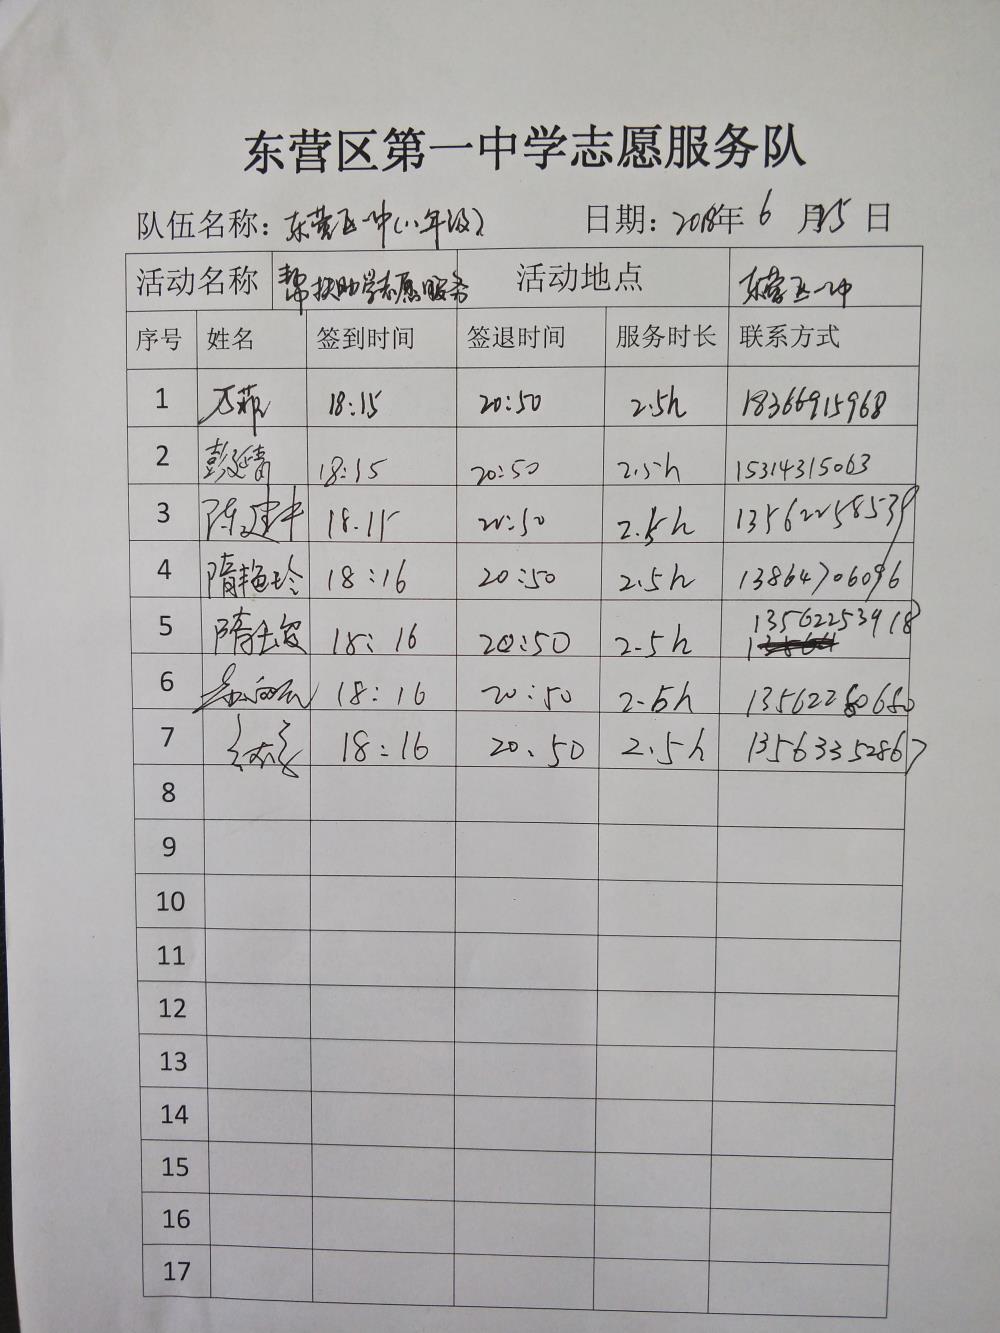 东营区第一中学志愿服务队
队伍名称：东营区一中（八年级） 日期：2018年 6 月25 日
活动名称 帮扶助学志愿服务 活动地点 东营区一中
序号 姓名 签到时间 签退时间 服务时长 联系方式
1 万菲 18:15 20:50 2.5h 18366915968
2 彭延青 18:15 20:50 2.5h 15314315063
3 陈建华 18.15 20:50 2.5h 13562258539
4 隋艳玲 18:16 20:50 2.5h 13864706096
5 18:16 20:50 2.5h 13562253918
6 18:16 20:50 2.5h 13562280680
7 18:16 20.50 2.5h 13563352867
8
9
10
11
12
13
14
15
16
17